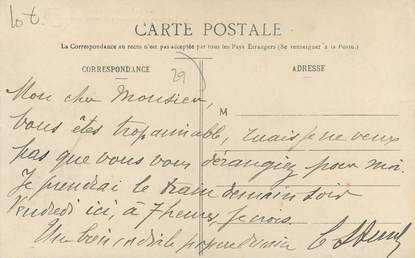 lot
CARTE POSTALE
La Correspondance au recto n'est pas acceptée par tous les Pays Etrangers (Se renseigner à la Poste.)
CORRESPONDANCE
ADRESSE
29
Mon cher Monsieur,
M
Vous êtes trop aimable, mais je ne veux
pas que vous vous dérangiez pour moi.
Je prendrai le tram demain soir
Vendredi ici, à 7 heures, je crois.
Une bien cordiale